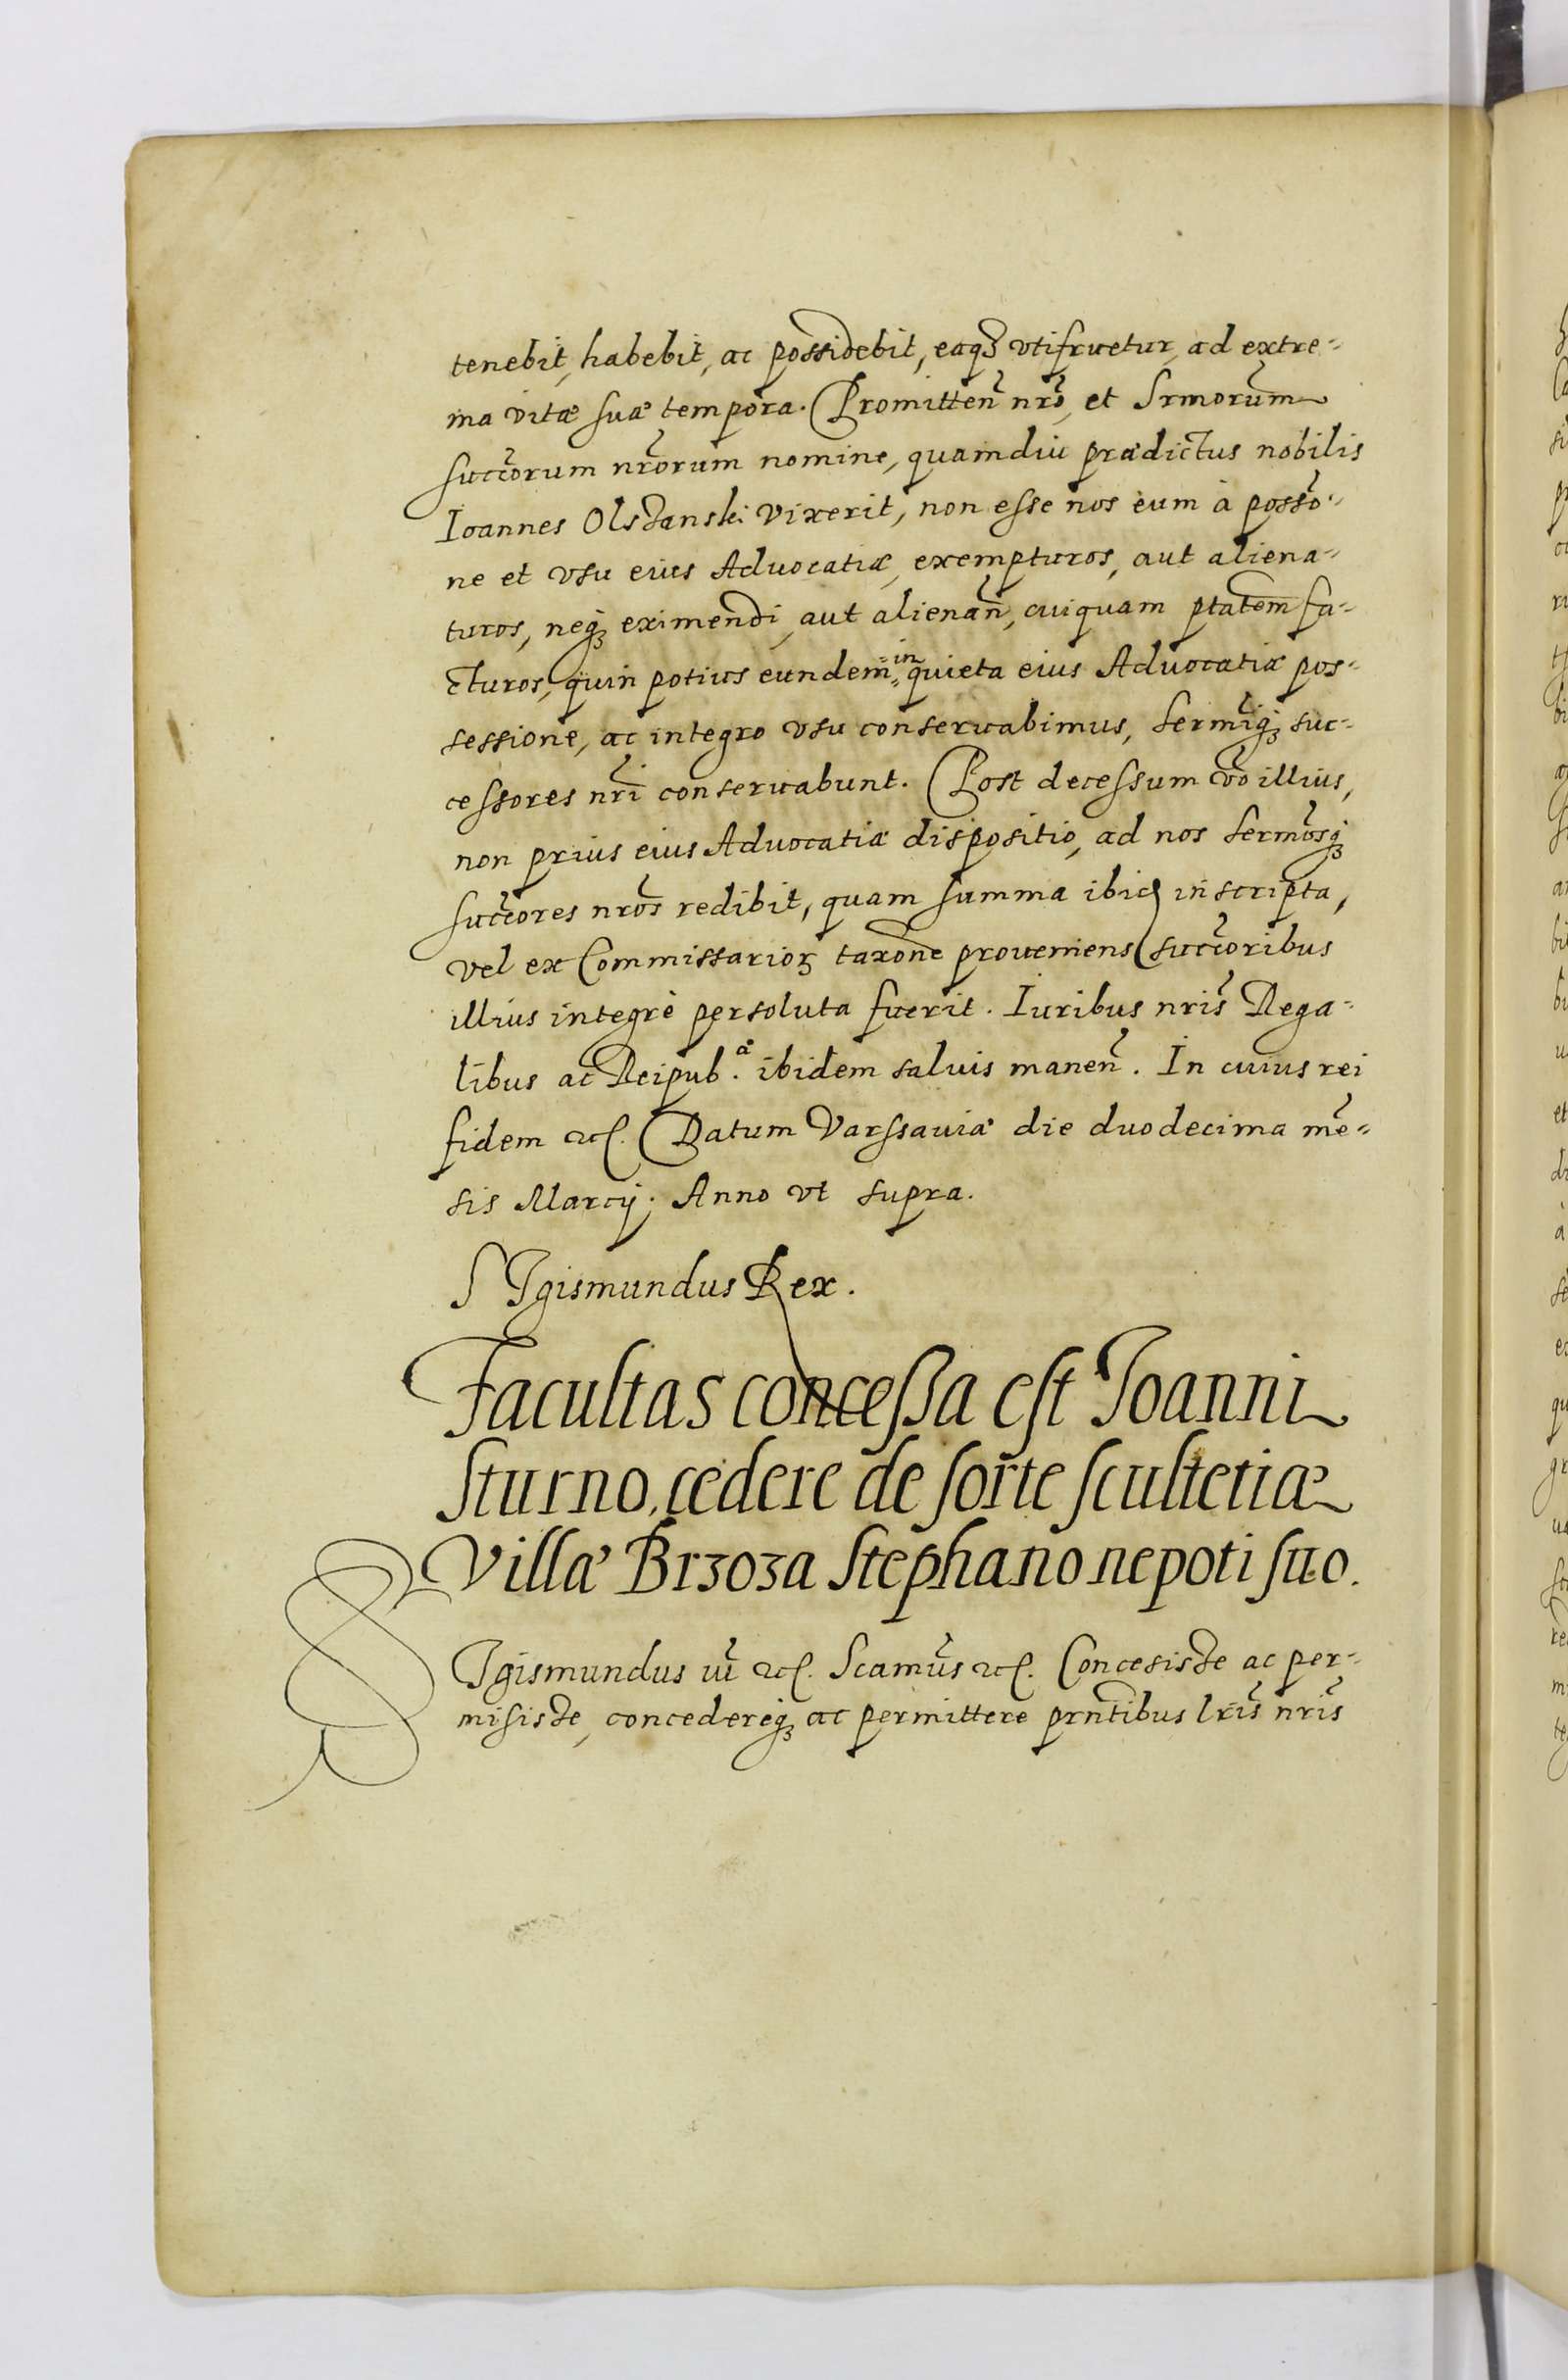 tenebit, habebit, ac possidebit, eaqꝫ vtifruetur, ad extre-
ma vitæ suæ tempora. Promitten̄ nr̄o, et Srmorum̄
succ̄orum nr̄orum nomine, quamdiu prædictus nobilis
Ioannes Olstanski vixerit, non esse nos eum à posso͠-
ne et vsu eius Aduocatiæ, exempturos, aut aliena-
turos, neqꝫ eximendi, aut alienan̄, cuiquam ptatem̄ fa-
cturos, quin potius eundem in quieta eius Aduocatiæ pos-
sessione, ac integro vsu conseruabimus, sermiqꝫ suc-
cessores nr̄i conseruabunt. Post decessum vō illius,
non prius eius Aduocatiæ dispositio, ad nos sermosqꝫ
succ̄ores nr̄os redibit, quam summa ibid inscripta,
vel ex Commissarioꝝ taxōne proueniens succ̄oribus
illius integrè persoluta fuerit. Iuribus nr̄is Rega-
libus ac Reipub.æ ibidem saluis manen̄. In cuius rei
fidem etc. Datum Varssauiæ die duodecima mē-
sis Marcij. Anno vt supra.
SIgismundus Rex.
Facultas concessa est Ioanni
Sturno, cedere de sorte scultetiæ
Villæ Brzoza Stephano nepoti suo.
SIgismundus iii etc. Scam̄us etc. Concesisse ac per-
misisse, concedereqꝫ ac permittere prn̄tibus lr̄is nr̄is